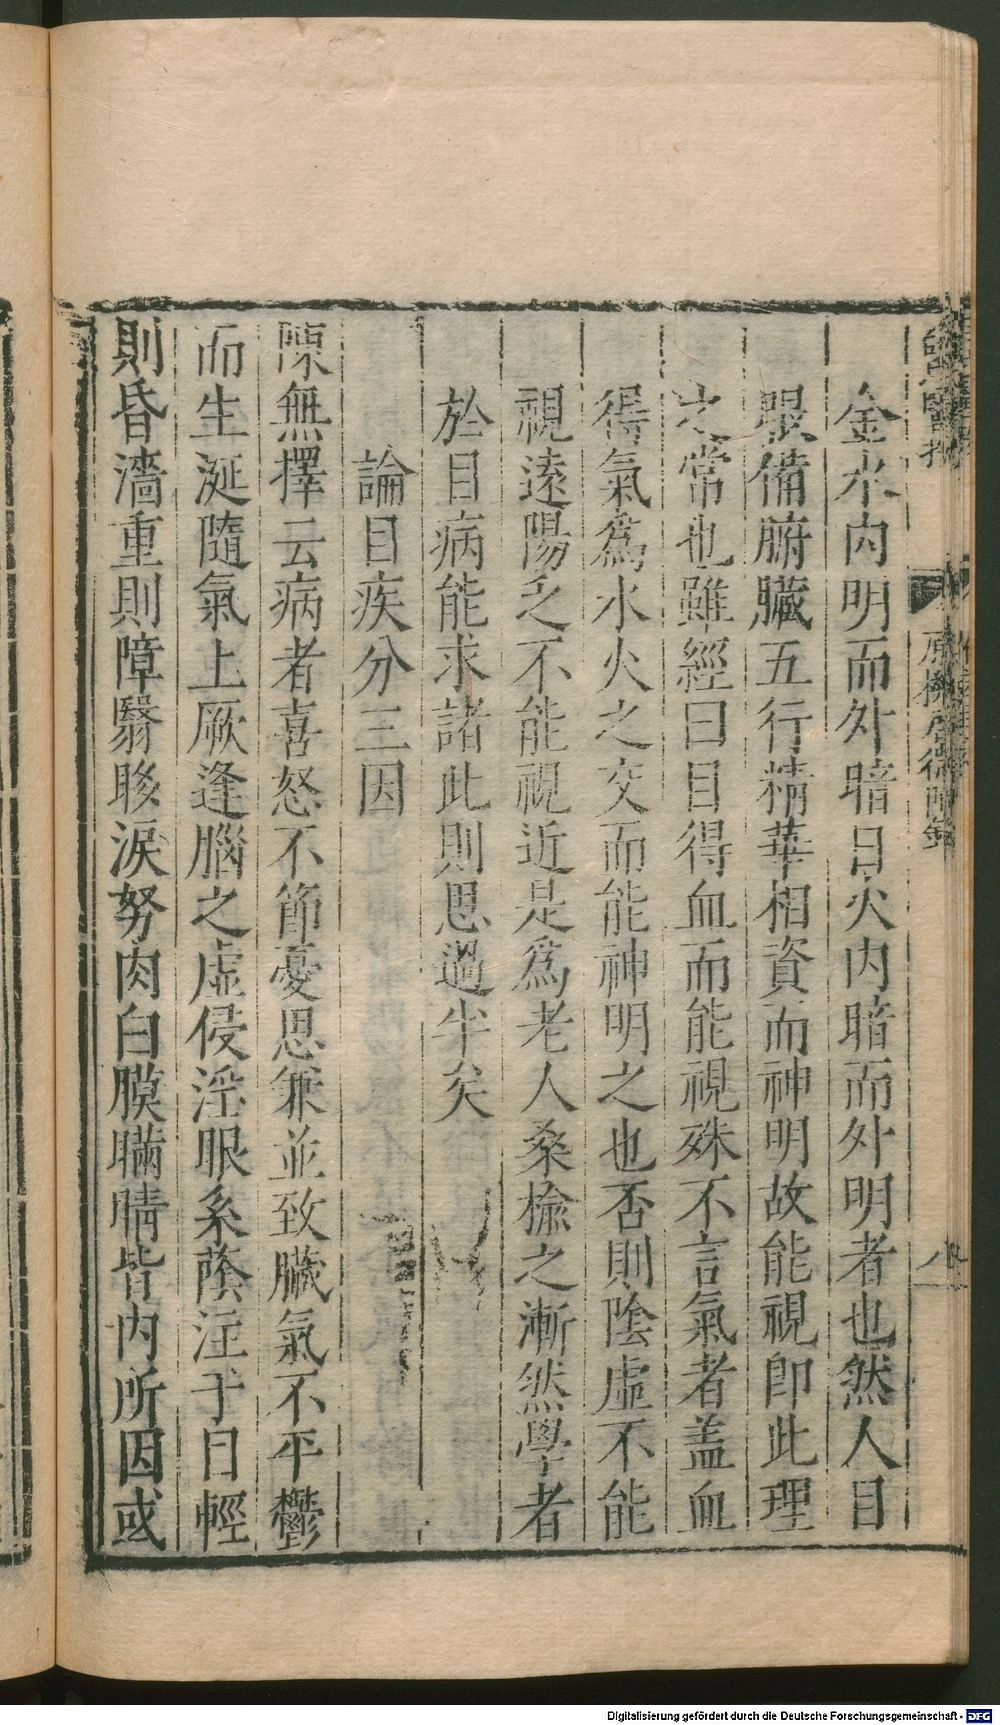 金水內明而外暗日火內暗而外明者也然人目
眼備腑臟五行精華相資而神明故能視卽此理
之常也雖經曰目得血而能視殊不言氣者盖血
得氣爲水火之交而能神明之也否則陰虛不能
視遠陽乏不能視近是爲老人桑榆之漸然學者
於目病能求諸此則思過半矣
論目疾分三因
陳無擇云病者喜怒不節憂思兼並致臟氣不平鬱
而生涎隨氣上厥逢腦之虛侵淫眼系蔭注于目輕
則昏濇重則障翳眵淚努肉白膜瞞睛皆內所因或
Digitalisierung gefördert durch die Deutsche Forschungsgemeinschaft - DFG